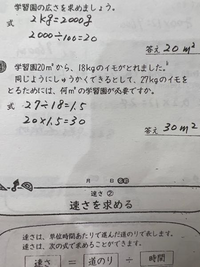 学習園の広さを求めましょう。
式 2kg=2000g
2000÷100=20
答え 20m²
学習園20m²から、18kgのイモがとれました。
同じようにしゅうかくできるとして、27kgのイモを
とるためには、何m²の学習園が必要ですか。
式 27÷18=1.5
20×1.5=30
答え 30m²
月 日
速さ②
速さを求める
速さは、単位時間あたりで進んだ道のりで表します。
速さは、次の式で求めることができます。
速さ = 道のり ÷ 時間